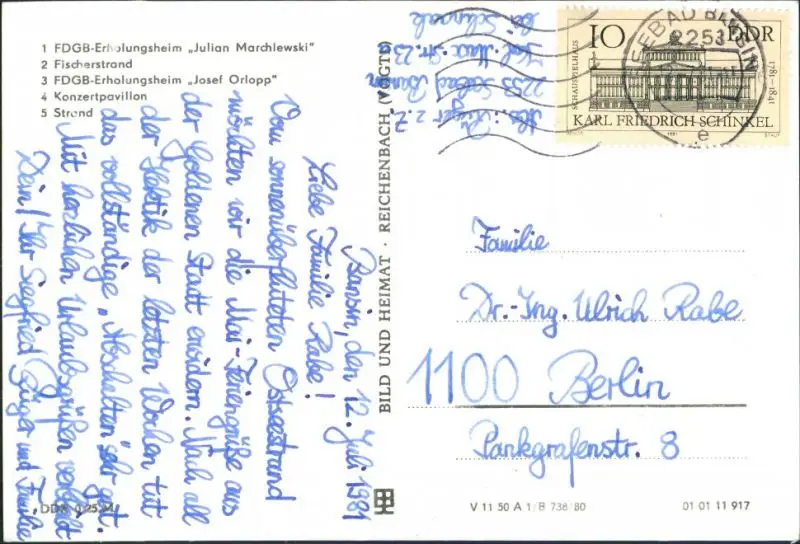 1 FDGB-Erholungsheim „Julian Marchlewski"
2 Fischerstrand
3 FDGB-Erholungsheim „Josef Orlopp"
4 Konzertpavillon
5 Strand
Bansin, den 12. Juli 1981
Liebe Familie Rabe!
Vom sonnenüberfluteten Ostseestrand
möchten wir die Mai-Feriengrüße aus
der Goldenen Stadt erwidern. Nach all
der Hektik der letzten Wochen tut
das vollständige „Abschalten" sehr gut.
Mit herzlichen Urlaubsgrüßen verbleibt
Dein/Ihr Siegfried und Familie
DDR 0,25 M
BILD UND HEIMAT · REICHENBACH (VOGTL)
Abs.: z. Z.
2253 Seebad Bansin
Karl-Marx-Str. 23a
bei
10 DDR
SCHAUSPIELHAUS
1781–1841
KARL FRIEDRICH SCHINKEL
1981
SEEBAD BANSIN
2253
e
Familie
Dr.-Ing. Ulrich Rabe
1100 Berlin
Pankgrafenstr. 8
V 11 50 A 1/B 738/80
01 01 11 917